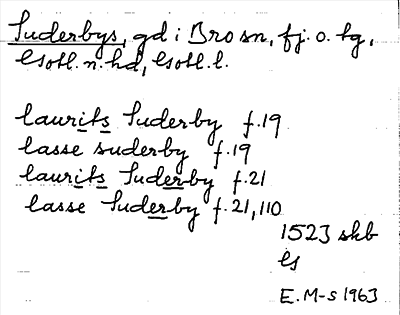 Suderbys, gd i Bro sn, fj. o. tg,
Gotl. n. hd, Gotl. l.
laurits Suderby f. 19
lasse suderby f. 19
laurits Suderby f. 21
lasse Suderby f. 21, 110
1523 skb
E. M-s 1963